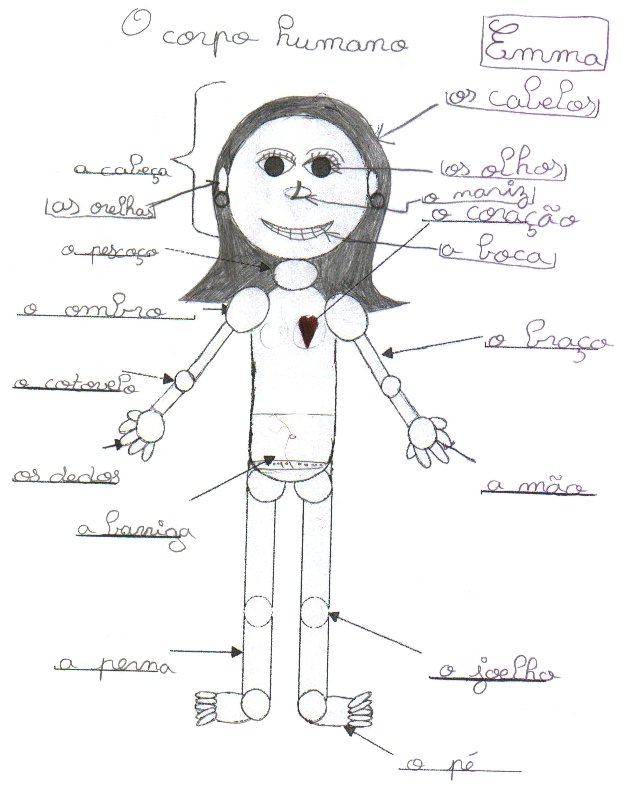 O corpo humano
Emma
os cabelos
a cabeça
os olhos
o nariz
as orelhas
o coração
o pescoço
a boca
o ombro
o braço
o cotovelo
os dedos
a mão
a barriga
a perna
o joelho
o pé